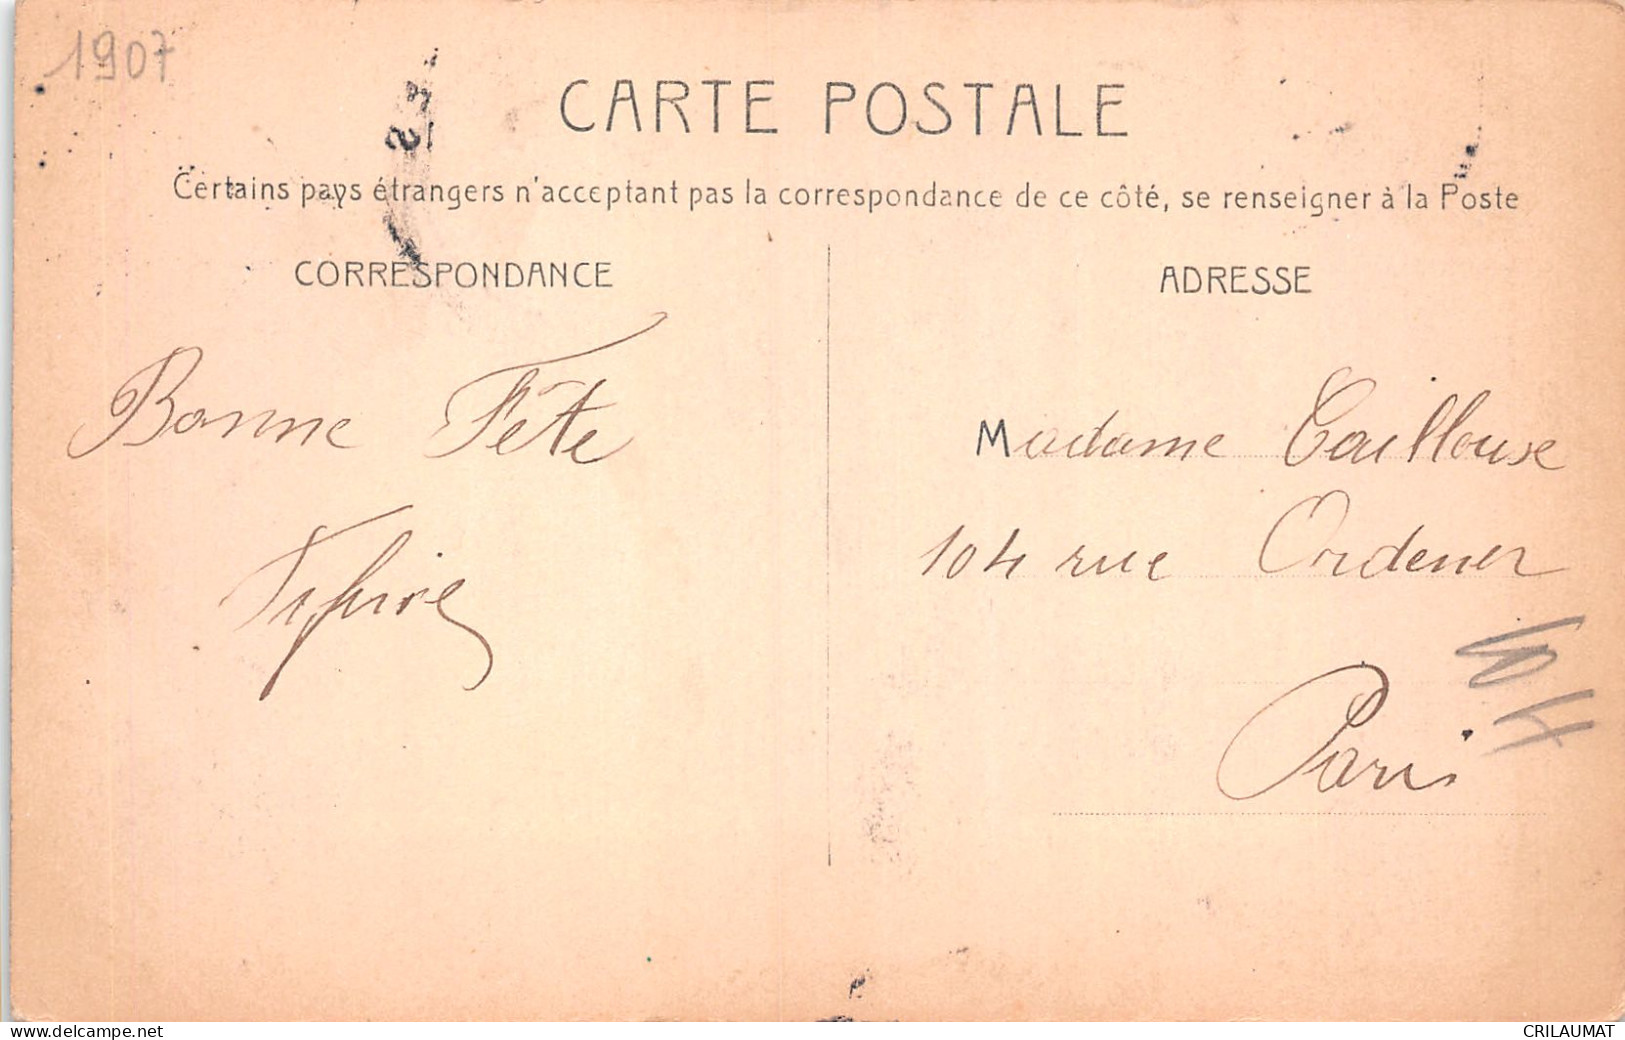 1907
CARTE POSTALE
Certains pays étrangers n'acceptant pas la correspondance de ce côté, se renseigner à la Poste
CORRESPONDANCE
ADRESSE
Bonne Fête
Madame Caillouse
104 rue Ordener
Paris
www.delcampe.net
CRILAUMAT